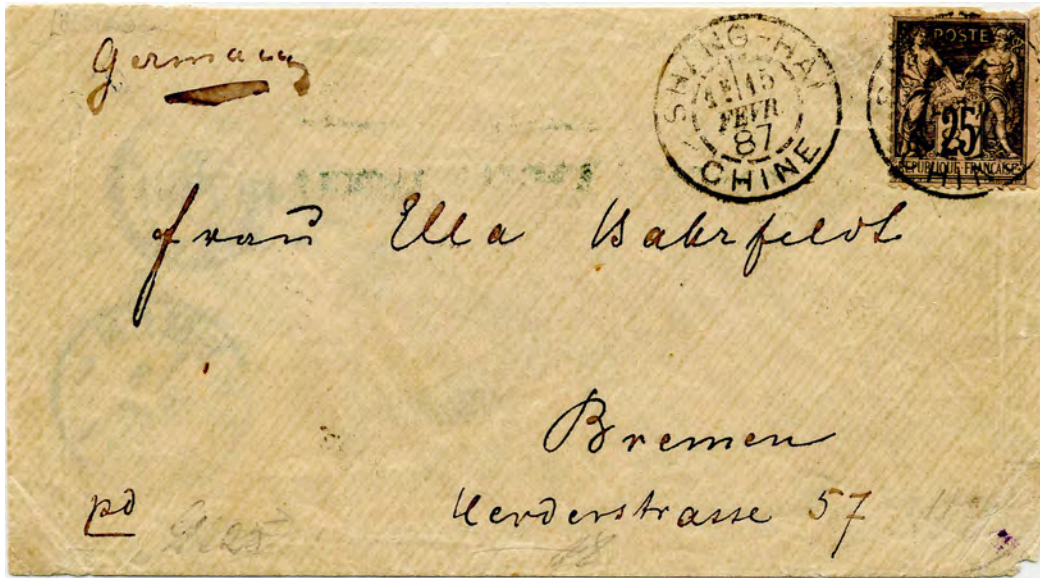 Germany
SHANG-HAI
15
FEVR
87
CHINE
POSTE
25
REPUBLIQUE FRANCAISE
Frau Ella Bahrfeldt
Bremen
Herderstrasse 57
pd